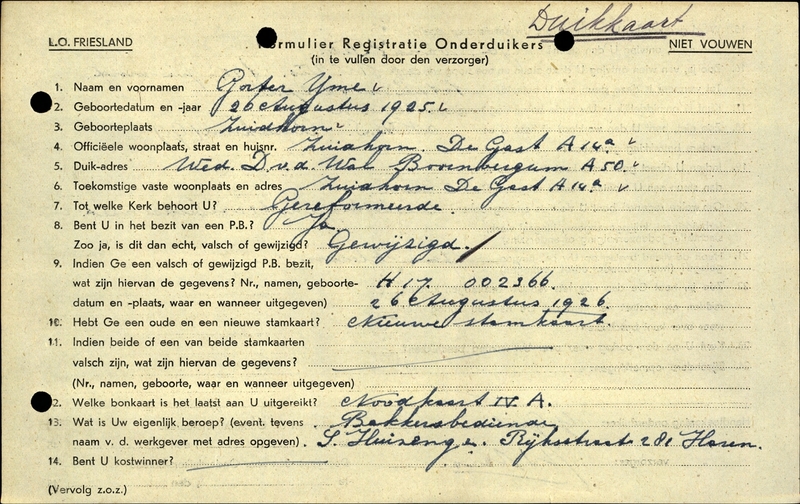 Duikkaart
L.O. FRIESLAND
Formulier Registratie Onderduikers
NIET VOUWEN
(in te vullen door den verzorger)
1. Naam en voornamen Gorter Yme
2. Geboortedatum en -jaar 26 Augustus 1925.
3. Geboorteplaats Zuidhorn
4. Officiëele woonplaats, straat en huisnr. Zuidhorn. De Gast A 14a
5. Duik-adres Wed. D. v. d. Wal Boornbergum A 50.
6. Toekomstige vaste woonplaats en adres Zuidhorn De Gast A 14a
7. Tot welke Kerk behoort U? Gereformeerde
8. Bent U in het bezit van een P.B.? Ja
Zoo ja, is dit dan echt, valsch of gewijzigd? Gewijzigd.
9. Indien Ge een valsch of gewijzigd P.B. bezit,
wat zijn hiervan de gegevens? Nr., namen, geboorte- H 17. 002366.
datum en -plaats, waar en wanneer uitgegeven) 26 Augustus 1926.
10. Hebt Ge een oude en een nieuwe stamkaart? Nieuwe stamkaart.
11. Indien beide of een van beide stamkaarten
valsch zijn, wat zijn hiervan de gegevens?
(Nr., namen, geboorte, waar en wanneer uitgegeven)
12. Welke bonkaart is het laatst aan U uitgereikt? Noodkaart IV A.
13. Wat is Uw eigenlijk beroep? (event. tevens Bakkersbediende
naam v. d. werkgever met adres opgeven) S. Huizenga. Rijksstraat 28c Haren.
14. Bent U kostwinner?
(Vervolg z.o.z.)